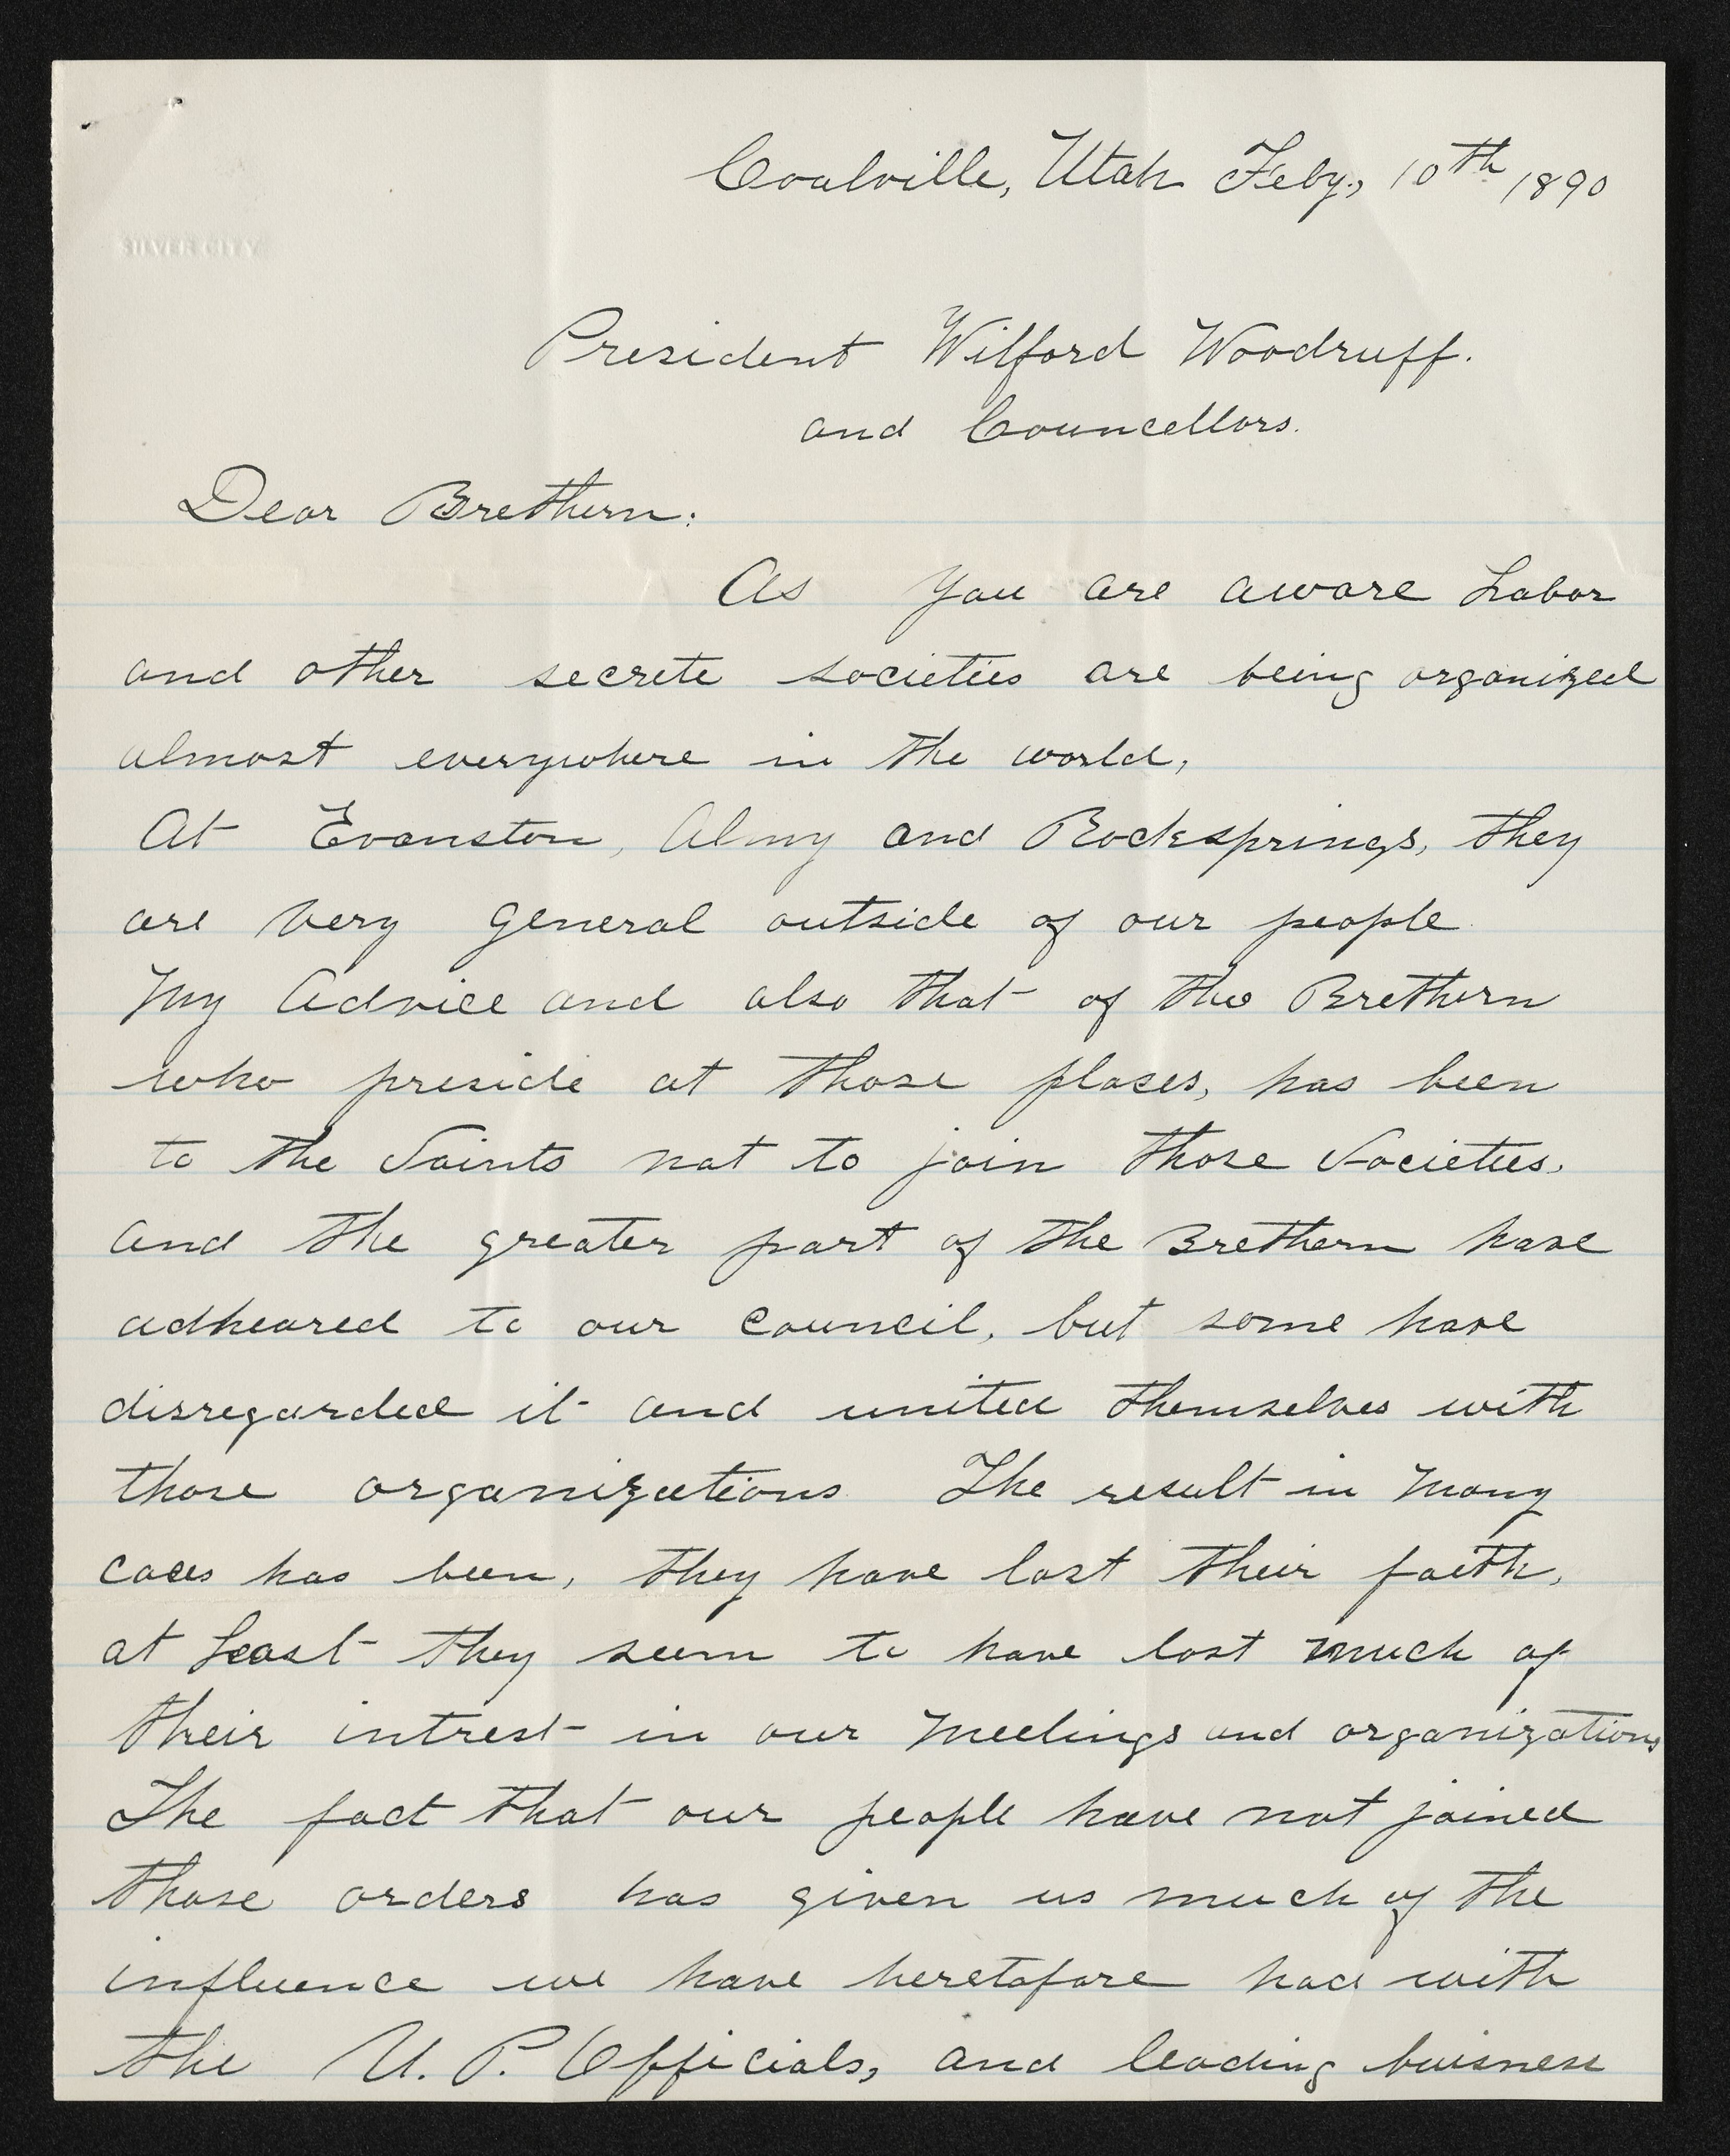 Coalville, Utah Feby., 10th 1890
SILVER CITY
President Wilford Woodruff.
and Councellors.
Dear Brethern:
As you are aware Labor
and other secrete societies are being organized
almost everywhere in the world,
At Evanston, Almy and Rocksprings, they
are very general outside of our people.
My Advice and also that of the Brethern
who preside at those plases, has been
to the Saints not to join those Societies.
and the greater part of the Brethern have
adheared to our council, but some have
disregarded it and united themselves with
those organizations. The result in many
cases has been, they have lost their faith,
at least they seem to have lost much of
their intrest in our meetings and organizations
The fact that our people have not joined
those orders has given us much of the
influence we have heretofore had with
the U. P. Officials, and leading buisness